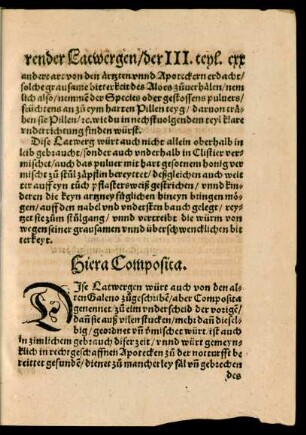 render Latwergen/der III. teyl. cxx
andere art von den ärtzten vnnd Apoteckern erdacht/
solche grausame bitterkeit des Aloes zůuerhälen/nem
lich also/nemmẽ der Species oder gestossens puluers/
feüchtens an zů eym harten Pillen teyg/daruon träh-
en sie Pillen/⁊c. wie du in nechstuolgenden teyl klare
vnderrichtung finden würst.
Dise Latwerg würt auch nicht allein oberhalb in
leib gebraucht/sonder auch vnderhalb in Clistier ver
mischet/auch das puluer mit hart gesottnen honig ver
mischt zů stül zäpflin bereyttet/deßgleichen auch weit
ter auff eyn tůch pflastersweiß gestrichen/vnnd kin-
deren die keyn artzney füglichen hineyn bringen mö-
gen/auff den nabel vnd vndersten bauch gelegt/rey-
tzet sie zům stülgang/vnnd vertreibt die würm von
wegen seiner grausamen vnnd überschwencklichen bit
terkeyt.
Hiera Composita.
DIse Latwergen würt auch von den al-
ten Galeno zůgeschribẽ/aber Composita
genennet/zů eim vnderscheid der vorigẽ/
dañ sie auß vilen stucken/meht dañ dieselb-
ig/geordnet vñ v̈mischet würt. ist auch
in zimlichem gebrauch diser zeit/vnnd würt gemeyn-
klich in rechtgeschaffnen Apotecken zů der notturfft be
reittet gefundẽ/dienet zů mancherley fäl vñ gebrechen
des